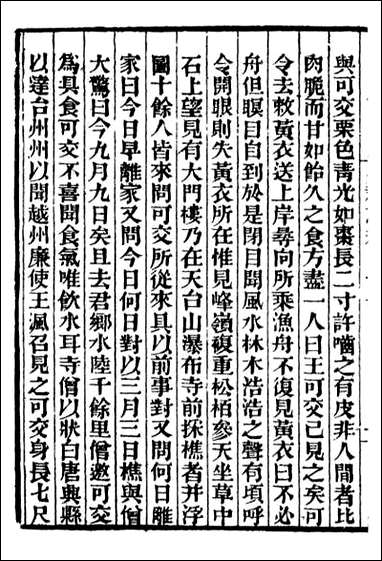 與可交栗色青光如棗長二寸許嚙之有皮非人間者比
肉脆而甘如飴久之食方盡一人曰王可交已見之矣可
令去救黃衣送上岸尋向所乘漁舟不復見黃衣曰不必
舟但瞑目自到於是閉目聞風水林木浩浩之聲有頃呼
令開眼則失黃衣所在惟見峰嶺複重松栢參天坐草中
石上望見有大門樓乃在天台山瀑布寺前採樵者并浮
圖十餘人皆來問可交所從來具以前事對又問何日離
家曰今日早離家又問今日何日對以三月三日樵與僧
大驚曰今九月九日矣且去君鄉水陸千餘里僧邀可交
為具食可交不喜聞食氣唯飲水耳寺僧以狀白唐典縣
以達台州州以聞越州廉使王渢召見之可交身長七尺